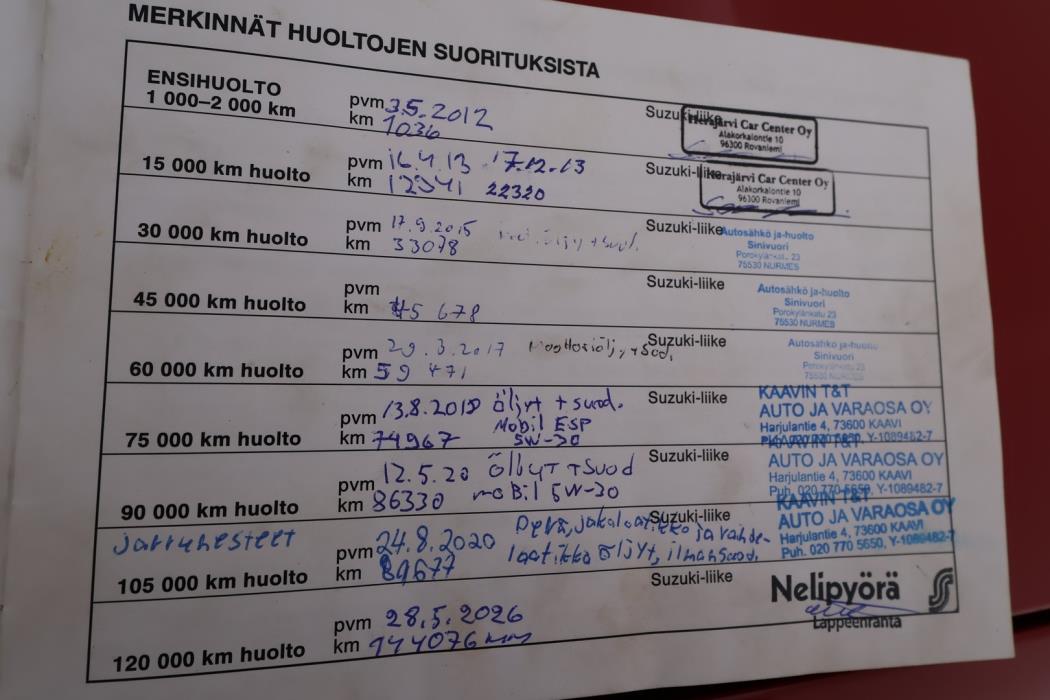 MERKINNÄT HUOLTOJEN SUORITUKSISTA
ENSIHUOLTO
1 000–2 000 km
pvm 3.5.2012
km 1036
Suzuki-liike
Herajärvi Car Center Oy
Alakorkalontie 10
96300 Rovaniemi
15 000 km huolto
pvm 16.4.13 17.12.13
km 12941 22320
Suzuki-liike
Herajärvi Car Center Oy
Alakorkalontie 10
96300 Rovaniemi
30 000 km huolto
pvm 17.9.2015
km 33078 öljy + suod.
Suzuki-liike
Autosähkö ja-huolto
Sinivuori
Porokylänkatu 23
75530 NURMES
45 000 km huolto
pvm
km 45 678
Suzuki-liike
Autosähkö ja-huolto
Sinivuori
Porokylänkatu 23
75530 NURMES
60 000 km huolto
pvm 29.3.2017 Moottoriöljy + suod.
km 59 471
Suzuki-liike
Autosähkö ja-huolto
Sinivuori
Porokylänkatu 23
75530 NURMES
75 000 km huolto
pvm 13.8.2018 öljyt + suod.
km 74967 Mobil ESP
5W-30
Suzuki-liike
KAAVIN T&T
AUTO JA VARAOSA OY
Harjulantie 4, 73600 KAAVI
Puh. 020 770 5650, Y-1089482-7
90 000 km huolto
pvm 12.5.20 ÖLJYT + SUOD
km 86330 mobil 5W-30
Suzuki-liike
KAAVIN T&T
AUTO JA VARAOSA OY
Harjulantie 4, 73600 KAAVI
Puh. 020 770 5650, Y-1089482-7
jarrunesteet
105 000 km huolto
pvm 24.8.2020 Perä, jakolaatikko ja vaihde-
km 89677 laatikko öljyt, ilmansuod.
Suzuki-liike
KAAVIN T&T
AUTO JA VARAOSA OY
Harjulantie 4, 73600 KAAVI
Puh. 020 770 5650, Y-1089482-7
120 000 km huolto
pvm 28.5.2026
km 144076
Suzuki-liike
Nelipyörä
Lappeenranta